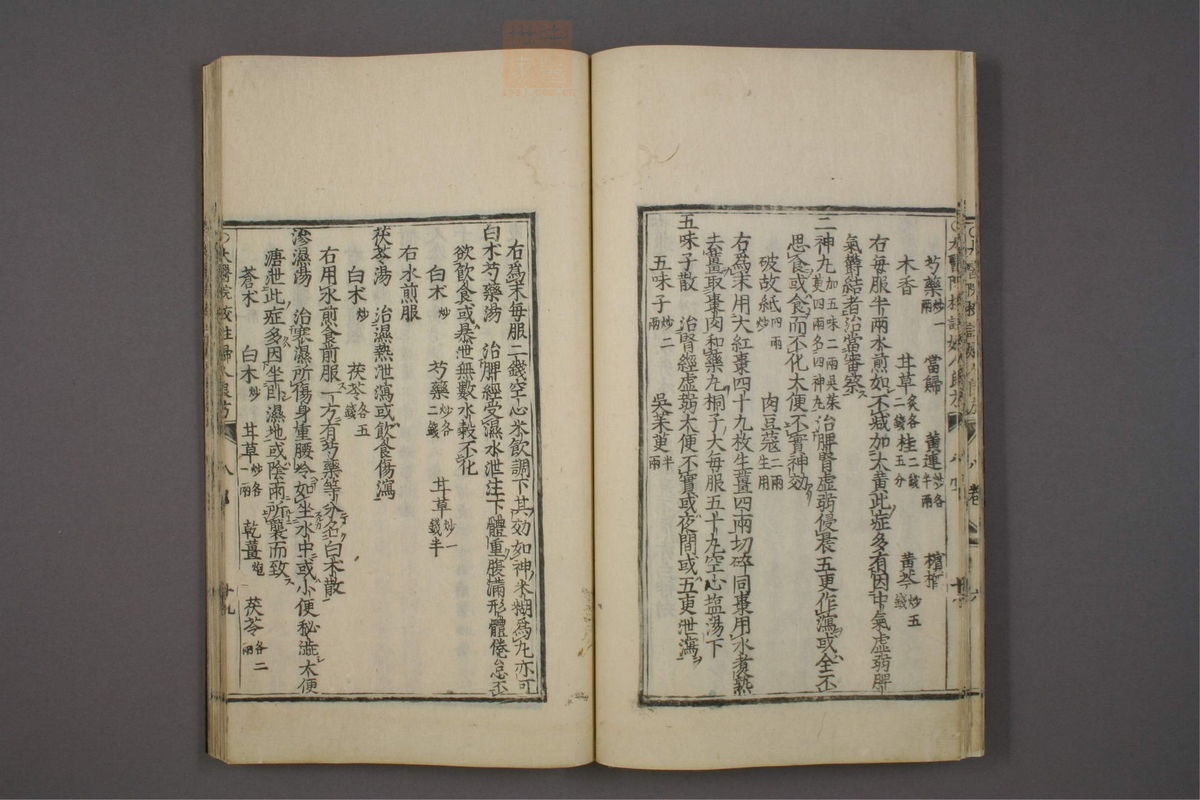 芍藥炒一兩 當歸 黃連炒各半兩 檳榔
木香 甘草炙各二錢 桂二錢五分 黃芩炒五錢
右每服半兩水煎如不減加大黃此症多有因中氣虛弱脾
氣欝結者治當審察
二神丸加五味二兩吳茱萸四兩名四神丸治脾腎虛弱侵晨五更作瀉或全不
思食或食而不化大便不實神効
破故紙四兩炒 肉豆蔻二兩生用
右爲末用大紅棗四十九枚生薑四兩切碎同棗用水煮熟
去薑取棗肉和藥丸桐子大每服五十丸空心塩湯下
五味子散 治腎經虛弱大便不實或夜間或五更泄瀉
五味子炒二兩 吳茱萸半兩
右爲末每服二錢空心米飲調下其効如神米糊爲丸亦可
白朮芍藥湯 治脾經受濕水泄注下體重腹滿形體倦怠不
欲飲食或暴泄無數水穀不化
白朮炒 芍藥炒各二錢 甘草炒一錢半
右水煎服
茯苓湯 治濕熱泄瀉或飲食傷瀉
白朮炒 茯苓各五錢
右用水煎食前服一方有芍藥等分名白朮散
滲濕湯 治寒濕所傷身重腰冷如坐水中或小便秘澁大便
溏泄此症多因坐卧濕地或陰雨所襲而致
蒼朮 白朮炒 甘草炒各一兩 乾薑炮 茯苓各二兩
○太醫院校注婦人良方 八 十九